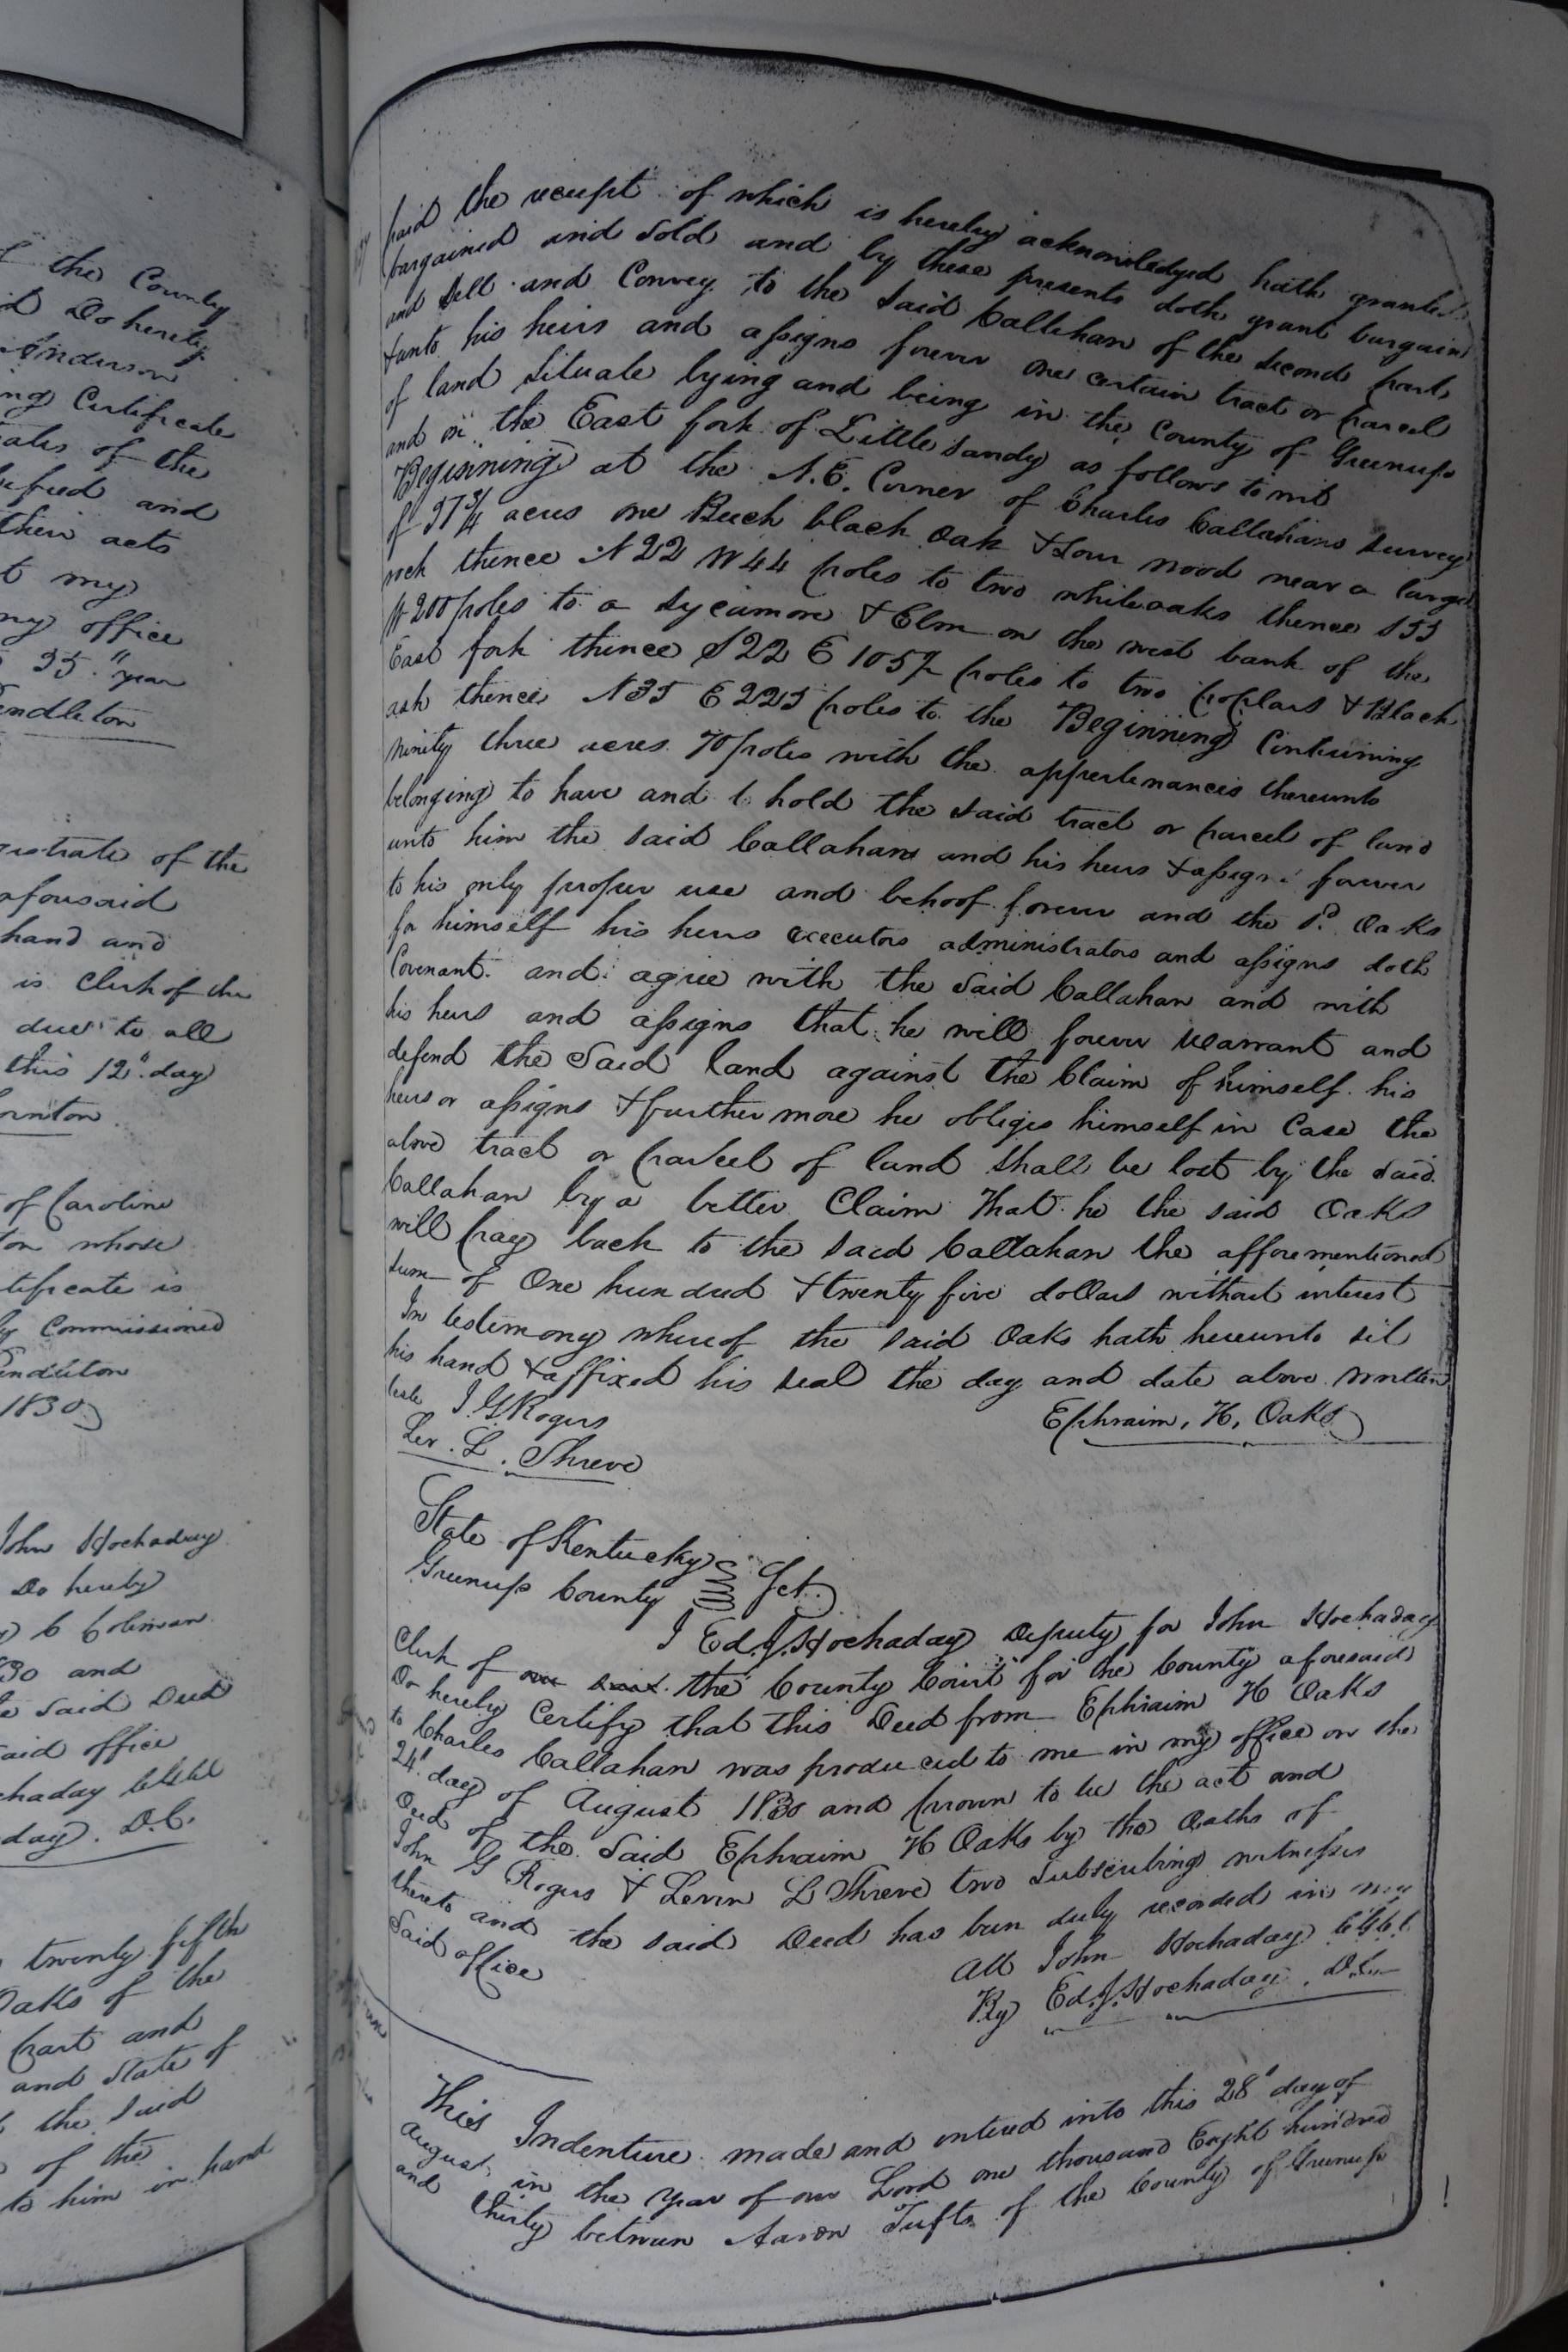 f the County
d Do hereby
Anderson
ing Certificate
ates of the
ified and
their acts
t my
my office
35" year
endleton
istrate of the
aforesaid
hand and
is Clerk of the
due to all
this 12" day
ornton
of Caroline
on whose
tificate is
ly Commissioned
endleton
1830
John Hockaday
Do hereby
C Coleman
30 and
e Said Deed
aid office
chaday
day. D.C.
twenty fifth
Oaks of the
part and
and State of
the Said
of the
to him in hand
paid the receipt of which is hereby acknowledged hath granted
bargained and Sold and by these presents doth grant bargain
and Sell and Convey to the Said Callihan of the Second part
& unto his heirs and assigns forever one certain tract or parcel
of land Situate lying and being in the County of Greenup
and on the East fork of Little Sandy as follows to wit
Beginning at the N.E. Corner of Charles Callahans Survey
of 37 3/4 acres one Beech black Oak & Sour wood near a large
rock thence N 22 W 44 poles to two white oaks thence S 55
W 200 poles to a Sycamore & Elm on the west bank of the
East fork thence S 22 E 105 poles to two poplars & Black
ash thence N 35 E 225 poles to the Beginning Containing
ninety three acres 70 poles with the appertenances thereunto
belonging to have and to hold the said tract or parcel of land
unto him the said Callahan and his heirs & assigns forever
to his only proper use and behoof forever and the sd. Oaks
for himself his heirs executors administrators and assigns doth
Covenant and agree with the Said Callahan and with
his heirs and assigns that he will forever warrant and
defend the Said land against the Claim of himself his
heirs or assigns & further more he obliges himself in Case the
above tract or parcel of land Shall be lost by the said
Callahan by a better Claim That he the said Oaks
will pay back to the Said Callahan the afforementioned
Sum of One hundred & twenty five dollars without interest
In testimony whereof the said Oaks hath hereunto set
his hand & affixed his Seal the day and date above written
teste J. G Rogers
Ephraim, H, Oaks
Lev. L. Shreve
State of Kentucky
Greenup County Sct.
I Ed. J. Hockaday Deputy for John Hockaday
Clerk of the County Court for the County aforesaid
Do hereby Certify that this Deed from Ephraim H Oaks
to Charles Callahan was produced to me in my office on the
24" day of August 1830 and proven to be the act and
Deed of the Said Ephraim H Oaks by the Oaths of
John G Rogers & Levin L Shreve two Subscribing witnesses
thereto and the said Deed has been duly recorded in my
Said office
Att John Hockaday
By Ed. J. Hockaday. D.C.
This Indenture made and entered into this 28" day of
August in the year of our Lord one thousand Eight hundred
and thirty between Aaron Tufts of the County of Greenup